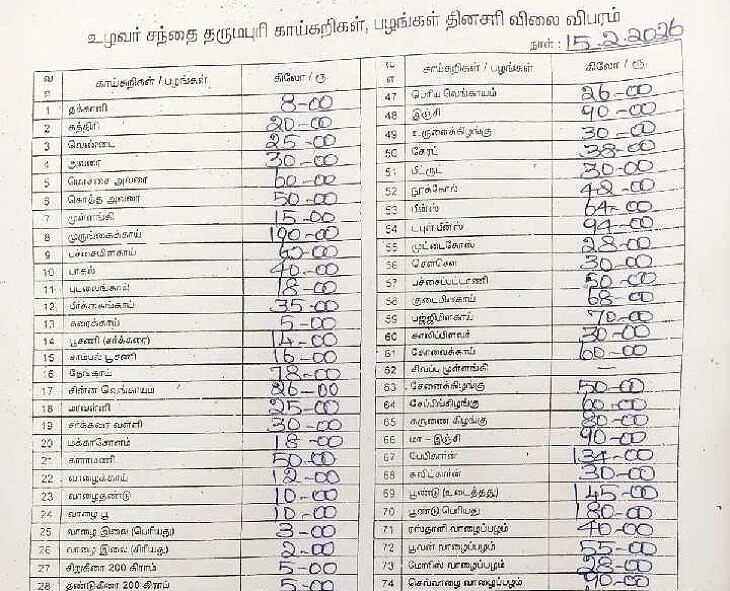 உழவர் சந்தை தருமபுரி காய்கறிகள், பழங்கள் தினசரி விலை விபரம்
நாள் : 15.2.2026
வ எ காய்கறிகள் / பழங்கள் கிலோ / ரூ
1 தக்காளி 8-00
2 கத்திரி 20-00
3 வெண்டை 25-00
4 அவரை 30-00
5 மொச்சை அவரை 60-00
6 கொத்த அவரை 50-00
7 முள்ளங்கி 15-00
8 முருங்கைக்காய் 100-00
9 பச்சைமிளகாய் 60-00
10 பாகல் 40-00
11 புடலைங்காய் 18-00
12 பீர்க்கங்காய் 35-00
13 சுரைக்காய் 5-00
14 பூசணி (சர்க்கரை) 14-00
15 சாம்பல் பூசணி 16-00
16 தேங்காய் 78-00
17 சின்ன வெங்காயம் 26-00
18 மரவள்ளி 25-00
19 சர்க்கரை வள்ளி 30-00
20 மக்காசோளம் 18-00
21 காராமணி 50-00
22 வாழைக்காய் 12-00
23 வாழைதண்டு 10-00
24 வாழை பூ 10-00
25 வாழை இலை (பெரியது) 3-00
26 வாழை இலை (சிரியது) 2-00
27 சிறுகீரை 200 கிராம் 5-00
28 தண்டுகீரை 200 கிராம் 5-00
எ காய்கறிகள் / பழங்கள் கிலோ / ரூ
47 பெரிய வெங்காயம் 26-00
48 இஞ்சி 90-00
49 உருளைக்கிழங்கு 30-00
50 கேரட் 38-00
51 பீட்ரூட் 30-00
52 நூக்கோல் 48-00
53 பீன்ஸ் 64-00
54 டபுள் பீன்ஸ் 94-00
55 முட்டைகோஸ் 28-00
56 சௌசௌ 30-00
57 பச்சைப்பட்டாணி 50-00
58 குடைமிளகாய் 68-00
59 பஜ்ஜிமிளகாய் 70-00
60 காலிப்பிளவர் 30-00
61 கோவைக்காய் 60-00
62 சிவப்பு முள்ளங்கி —
63 சேனைக்கிழங்கு 50-00
64 சேப்பங்கிழங்கு 60-00
65 கருணை கிழங்கு 80-00
66 மா - இஞ்சி 90-00
67 பேபிகார்ன் 134-00
68 சுவிட்கார்ன் 30-00
69 பூண்டு (உடைத்தது) 145-00
70 பூண்டு பெரியது 180-00
71 ரஸ்தாளி வாழைப்பழம் 40-00
72 பூவன் வாழைப்பழம் 55-00
73 மோரிஸ் வாழைப்பழம் 28-00
74 செவ்வாழை வாழைப்பழம் 90-00